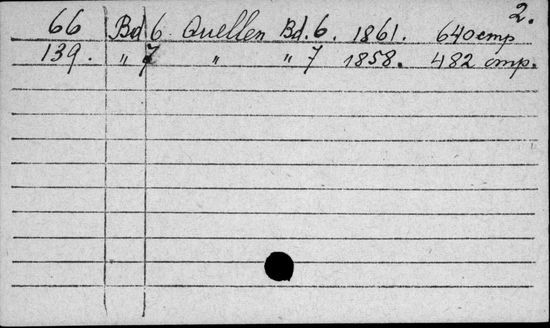 2.
66 Bd. 6. Quellen Bd. 6. 1861. 640 cmp
139. " 7 " " 7 1858. 482 cmp.